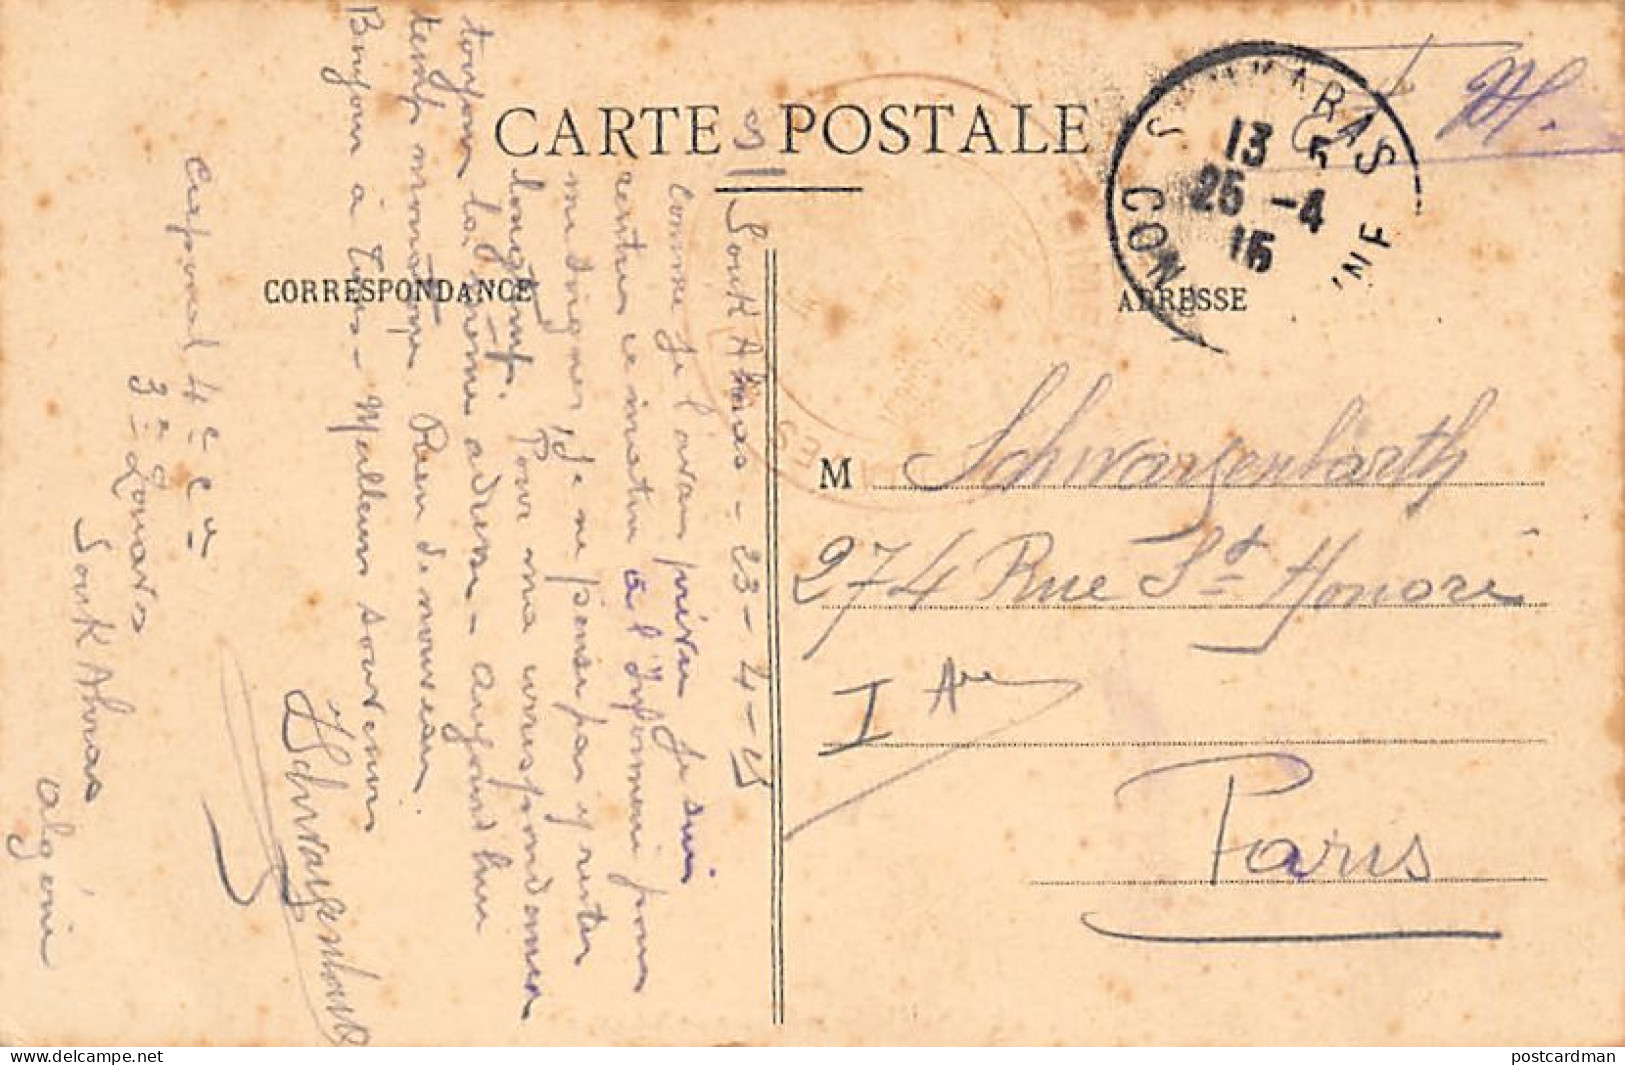 CARTE POSTALE
CORRESPONDANCE
ADRESSE
S
KARAS
13 5
25 -4
15
CON NE
F. M.
Souk Ahras - 23-4-15
Comme je l'avais prévu je suis
rentrer ce matin à l'Infirmerie pour
me soigner, je ne pense pas y rester
longtemps. Pour ma correspondance
toujours la même adresse - aujourd'hui
temps monotone. Rien de nouveau.
Bonjour à Tous - Meilleurs souvenirs
Schwarzenbarth
Caporal 4e Cie
3e Zouaves
Souk Ahras
Algérie
M Schwarzenbarth
274 Rue St Honoré
I Arr
Paris
postcardman
www.delcampe.net